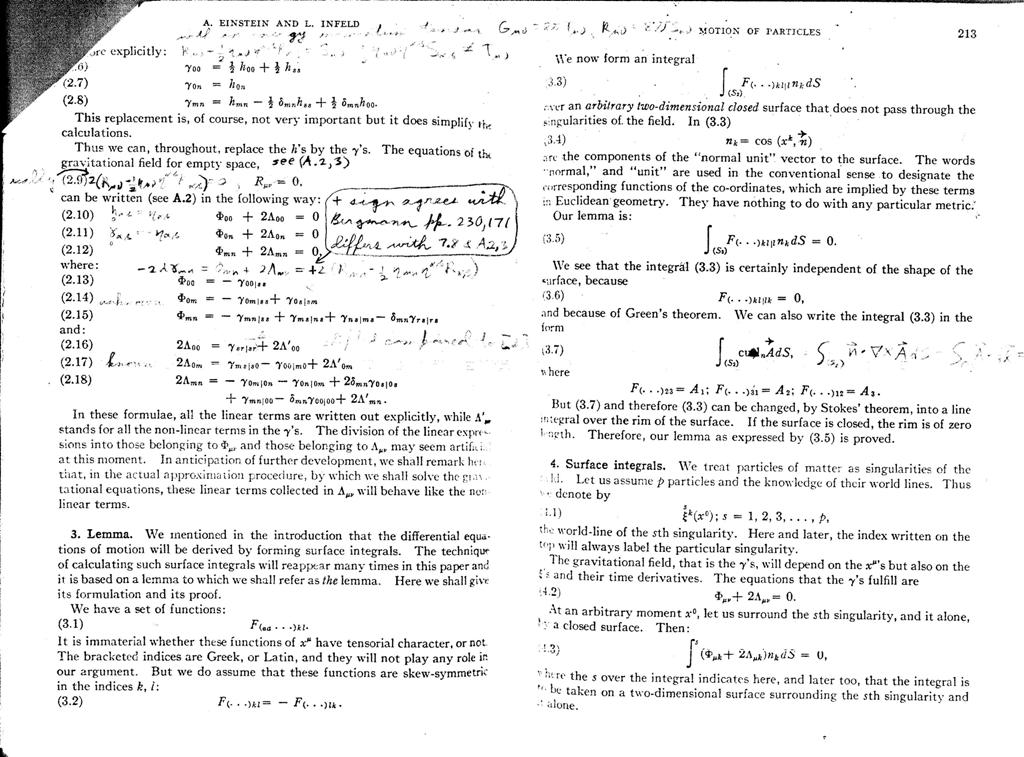 A. EINSTEIN AND L. INFELD
explicitly:
(2.6) γ₀₀ = ½ h₀₀ + ½ hₛₛ
(2.7) γ₀ₙ = h₀ₙ
(2.8) γₘₙ = hₘₙ − ½ δₘₙhₛₛ + ½ δₘₙh₀₀.
This replacement is, of course, not very important but it does simplify the
calculations.
Thus we can, throughout, replace the h's by the γ's. The equations of the
gravitational field for empty space, see (A.2,3)
(2.9) R_μν = 0,
can be written (see A.2) in the following way:
+ sign agrees with
Bergmann pp. 230,171
differs with 7.8 & A2,3
(2.10) Φ₀₀ + 2Λ₀₀ = 0
(2.11) Φ₀ₙ + 2Λ₀ₙ = 0
(2.12) Φₘₙ + 2Λₘₙ = 0,
where:
(2.13) Φ₀₀ = − γ₀₀|ₛₛ
(2.14) Φ₀ₘ = − γ₀ₘ|ₛₛ + γ₀ₛ|ₛₘ
(2.15) Φₘₙ = − γₘₙ|ₛₛ + γₘₛ|ₙₛ + γₙₛ|ₘₛ − δₘₙγᵣₛ|ᵣₛ
and:
(2.16) 2Λ₀₀ = γₛᵣ|ₛᵣ + 2Λ'₀₀
(2.17) known 2Λ₀ₘ = γₘₛ|ₛ₀ − γ₀₀|ₘ₀ + 2Λ'₀ₘ
(2.18) 2Λₘₙ = − γ₀ₘ|₀ₙ − γ₀ₙ|₀ₘ + 2δₘₙγ₀ₛ|₀ₛ
+ γₘₙ|₀₀ − δₘₙγ₀₀|₀₀ + 2Λ'ₘₙ.
In these formulae, all the linear terms are written out explicitly, while Λ'_μν
stands for all the non-linear terms in the γ's. The division of the linear expres-
sions into those belonging to Φ_μν and those belonging to Λ_μν may seem artificial
at this moment. In anticipation of further development, we shall remark here
that, in the actual approximation procedure, by which we shall solve the gravi-
tational equations, these linear terms collected in Λ_μν will behave like the non-
linear terms.
3. Lemma. We mentioned in the introduction that the differential equa-
tions of motion will be derived by forming surface integrals. The technique
of calculating such surface integrals will reappear many times in this paper and
it is based on a lemma to which we shall refer as the lemma. Here we shall give
its formulation and its proof.
We have a set of functions:
(3.1) F(αa . . .)kl.
It is immaterial whether these functions of x^μ have tensorial character, or not.
The bracketed indices are Greek, or Latin, and they will not play any role in
our argument. But we do assume that these functions are skew-symmetric
in the indices k, l:
(3.2) F(. . .)kl = − F(. . .)lk.
MOTION OF PARTICLES 213
We now form an integral
(3.3) ∫(S₂) F(. . .)kl|l nₖdS
over an arbitrary two-dimensional closed surface that does not pass through the
singularities of the field. In (3.3)
(3.4) nₖ = cos (xᵏ, n⃗)
are the components of the "normal unit" vector to the surface. The words
"normal," and "unit" are used in the conventional sense to designate the
corresponding functions of the co-ordinates, which are implied by these terms
in Euclidean geometry. They have nothing to do with any particular metric.
Our lemma is:
(3.5) ∫(S₂) F(. . .)kl|l nₖdS = 0.
We see that the integral (3.3) is certainly independent of the shape of the
surface, because
(3.6) F(. . .)kl|lk = 0,
and because of Green's theorem. We can also write the integral (3.3) in the
form
(3.7) ∫(S₂) curlₙA⃗dS,
where
F(. . .)₂₃ = A₁; F(. . .)₃₁ = A₂; F(. . .)₁₂ = A₃.
But (3.7) and therefore (3.3) can be changed, by Stokes' theorem, into a line
integral over the rim of the surface. If the surface is closed, the rim is of zero
length. Therefore, our lemma as expressed by (3.5) is proved.
4. Surface integrals. We treat particles of matter as singularities of the
field. Let us assume p particles and the knowledge of their world lines. Thus
we denote by
(4.1) ξˢᵏ(x⁰); s = 1, 2, 3, . . . , p,
the world-line of the sth singularity. Here and later, the index written on the
top will always label the particular singularity.
The gravitational field, that is the γ's, will depend on the x^μ's but also on the
ξ's and their time derivatives. The equations that the γ's fulfill are
(4.2) Φ_μν + 2Λ_μν = 0.
At an arbitrary moment x⁰, let us surround the sth singularity, and it alone,
by a closed surface. Then:
(4.3) ∫ˢ (Φ_μk + 2Λ_μk)nₖdS = 0,
where the s over the integral indicates here, and later too, that the integral is
to be taken on a two-dimensional surface surrounding the sth singularity and
it alone.